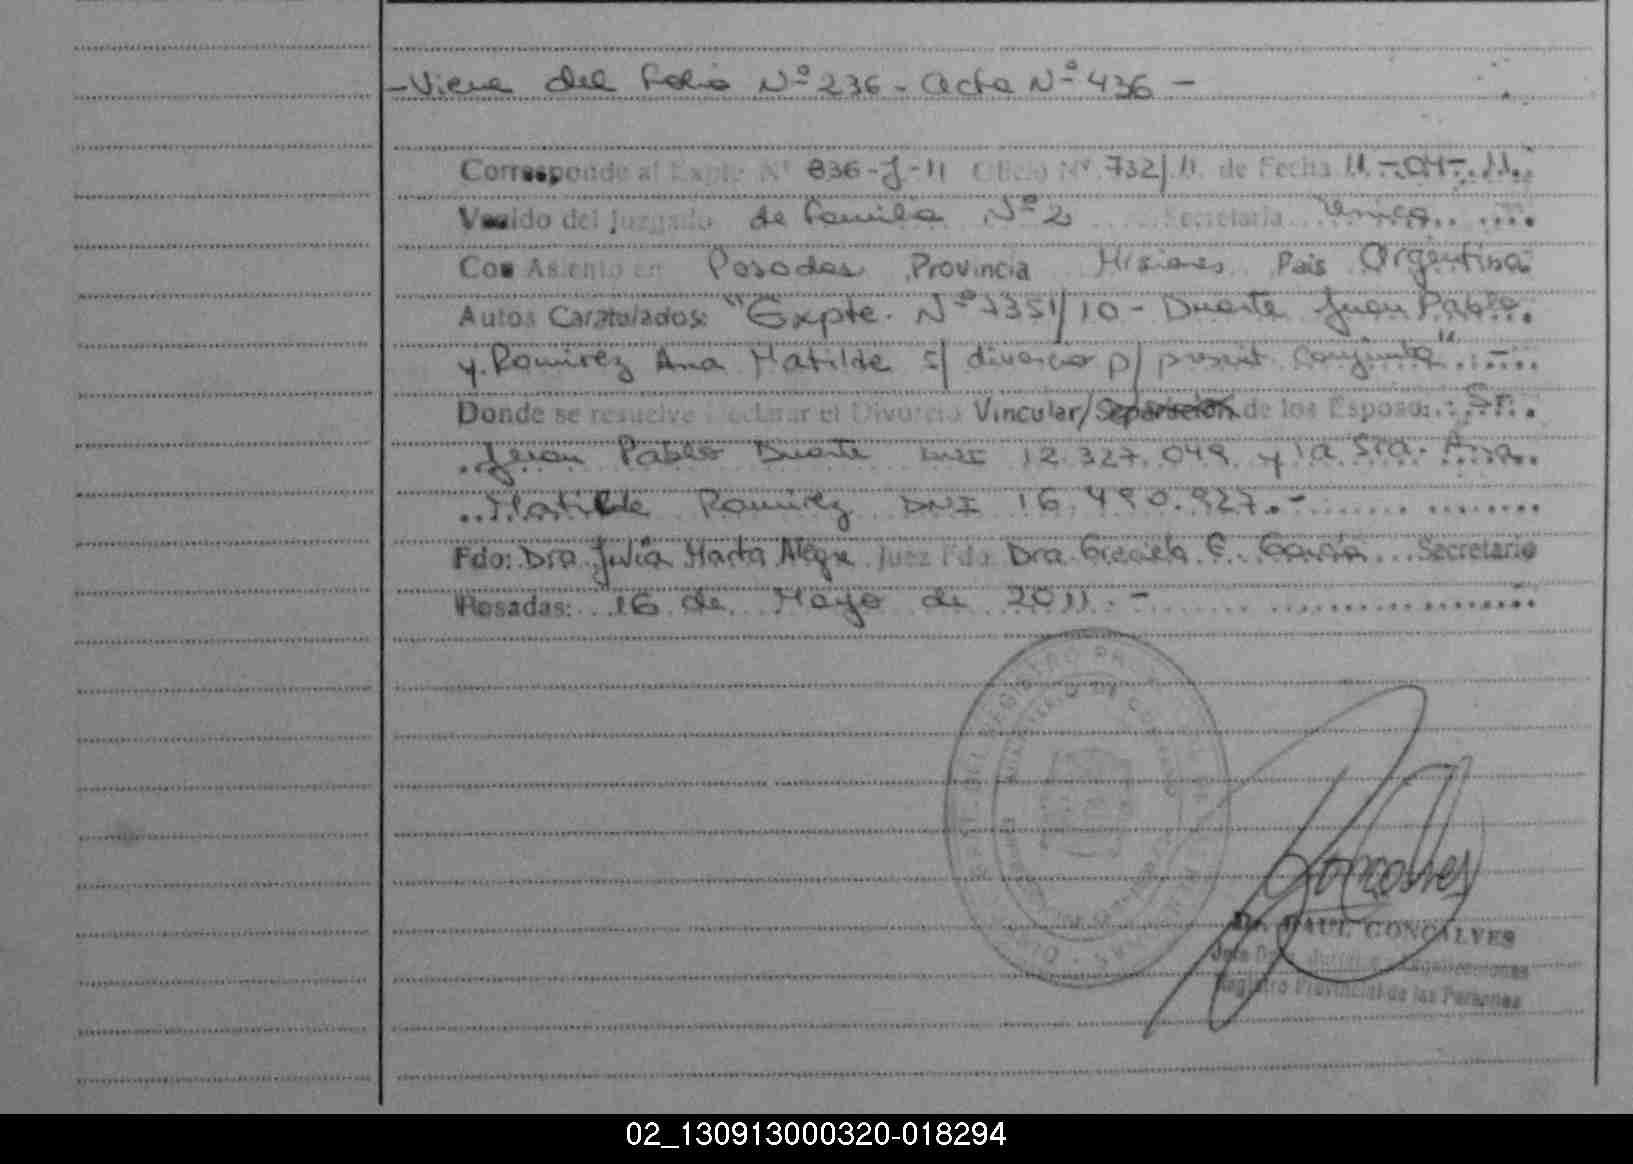 -Viene del folio Nº 236 - Acta Nº 436 -
Corresponde al Expte Nº 836-J-11 Oficio Nº 732/11. de Fecha 11-04-11.
Venido del Juzgado de Familia Nº 2 Secretaria Unica
Con Asiento en Posadas Provincia Misiones Pais Argentina
Autos Caratulados: "Expte. Nº 1351/10 - Duarte Juan Pablo
y Ramirez Ana Matilde s/ divorcio p/ present. conjunta".-
Donde se resuelve Declarar el Divorcio Vincular/Separación de los Esposo: Sr.
Juan Pablo Duarte DNI 12.327.049 y la Sra. Ana
Matilde Ramirez DNI 16.490.927.-
Fdo: Dra Julia Marta Alegre Juez Fdo Dra Graciela E. García Secretario
Posadas: 16 de Mayo de 2011.-
Goncalves
Dr. RAUL GONCALVES
Jefe
Registro Provincial de las Personas
02_130913000320-018294